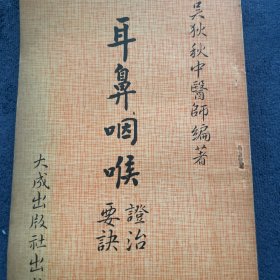 吳狄秋中醫師編著
耳鼻咽喉
證治
要訣
大成出版社出